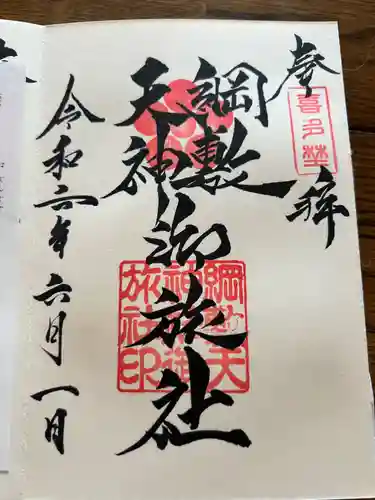 奉拝
喜多埜
綱敷
天神
御旅社
綱敷天
神御
旅社印
令和六年六月一日